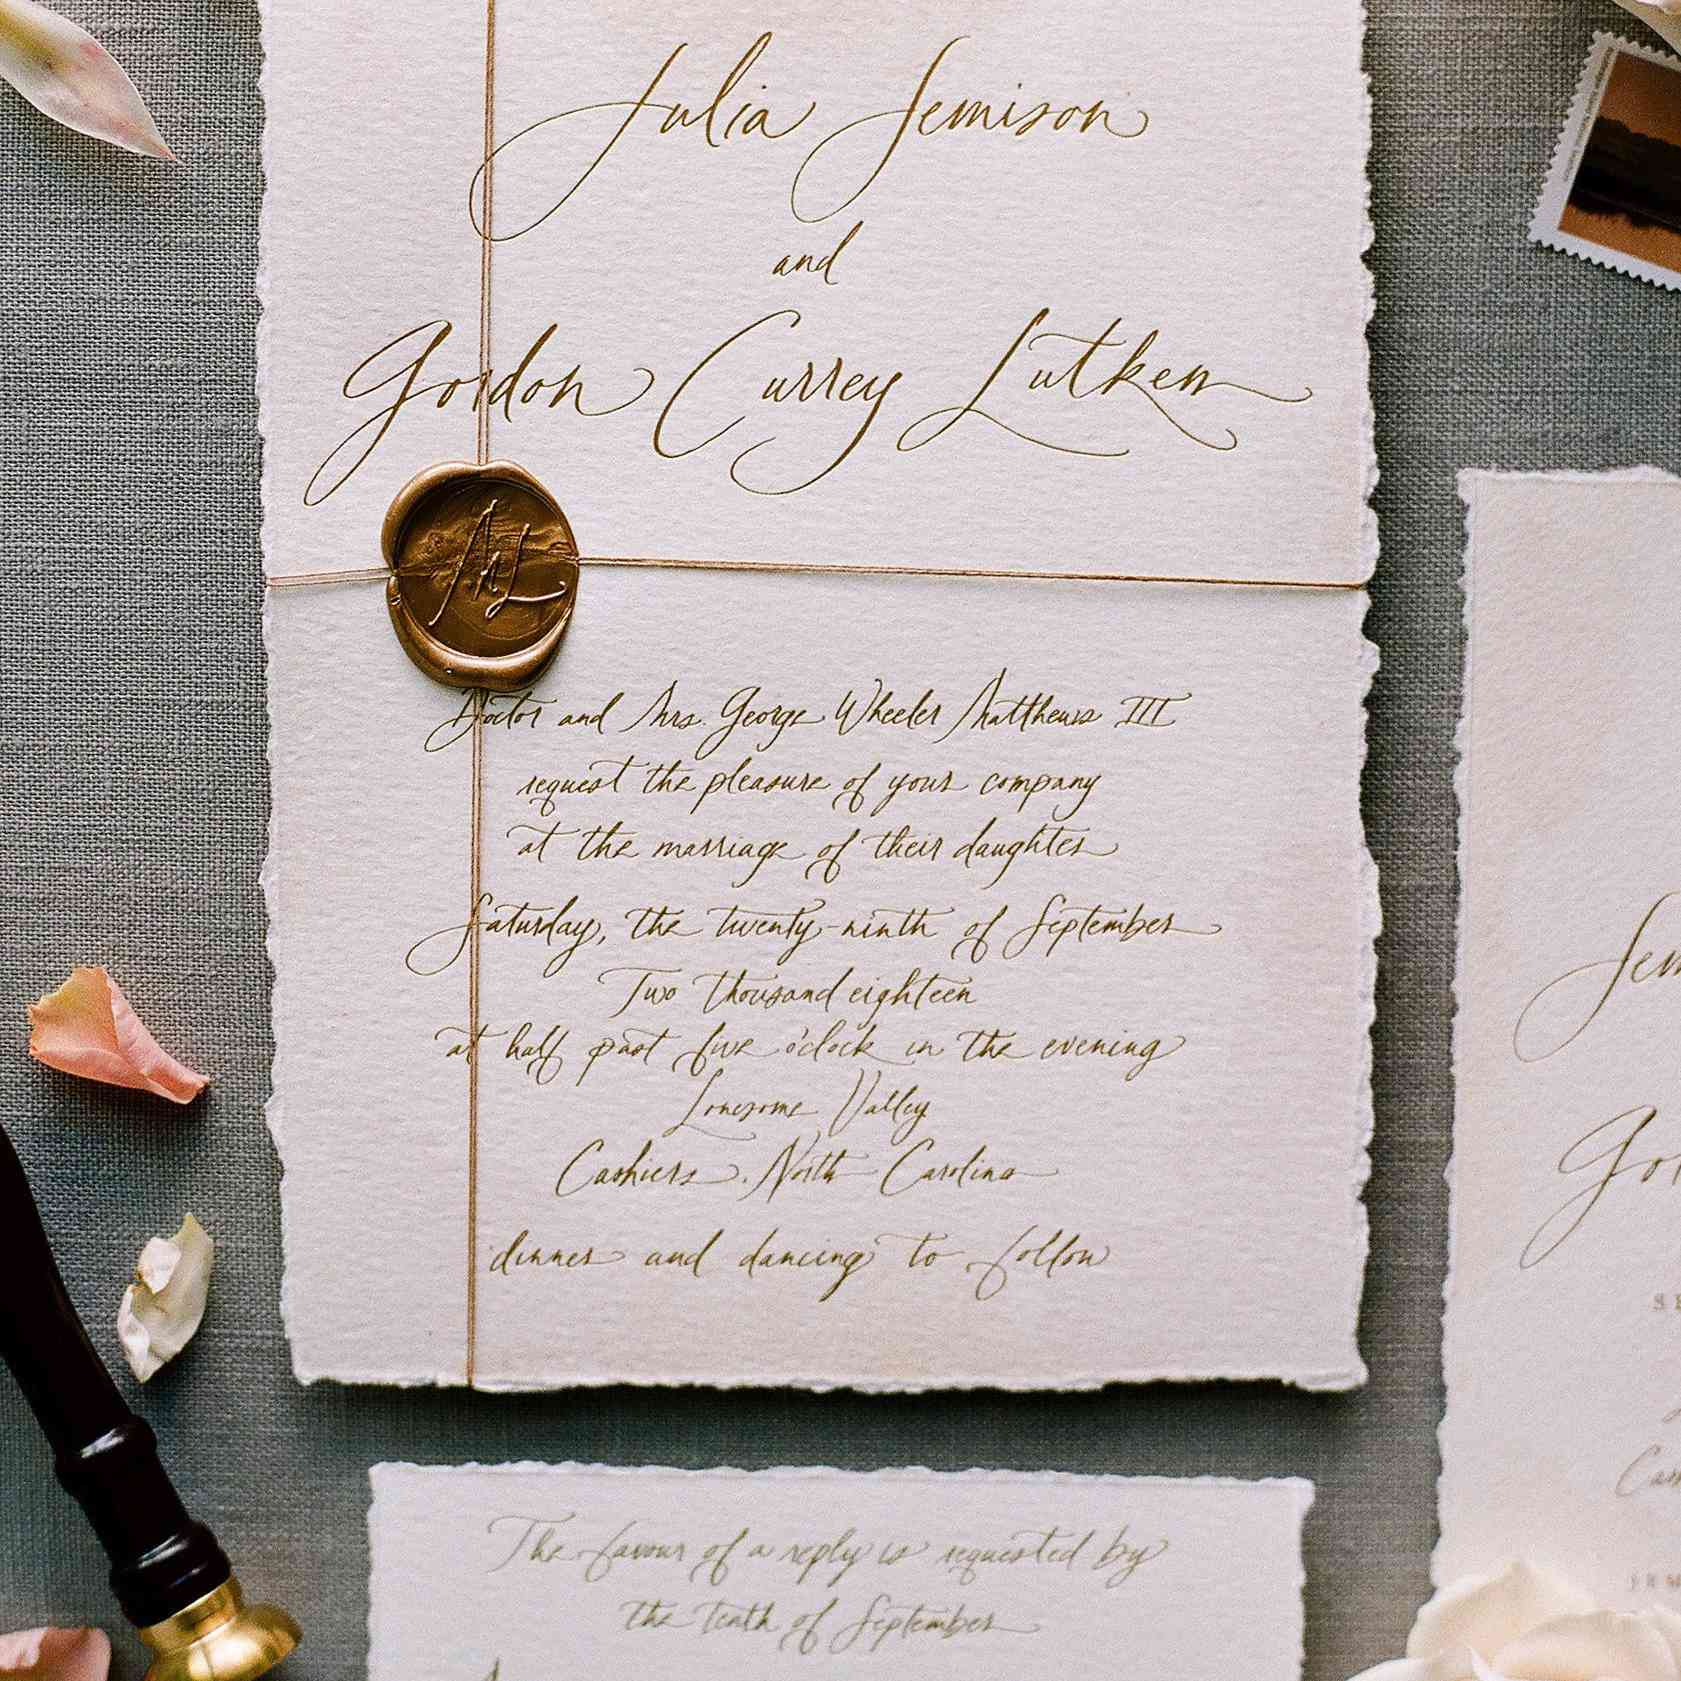 Julia Jemison
and
Gordon Currey Lutken
Doctor and Mrs. George Wheeler Matthews III
request the pleasure of your company
at the marriage of their daughter
Saturday, the twenty-ninth of September
Two thousand eighteen
at half past five o'clock in the evening
Lonesome Valley
Cashiers, North Carolina
dinner and dancing to follow
The favour of a reply is requested by
the tenth of September